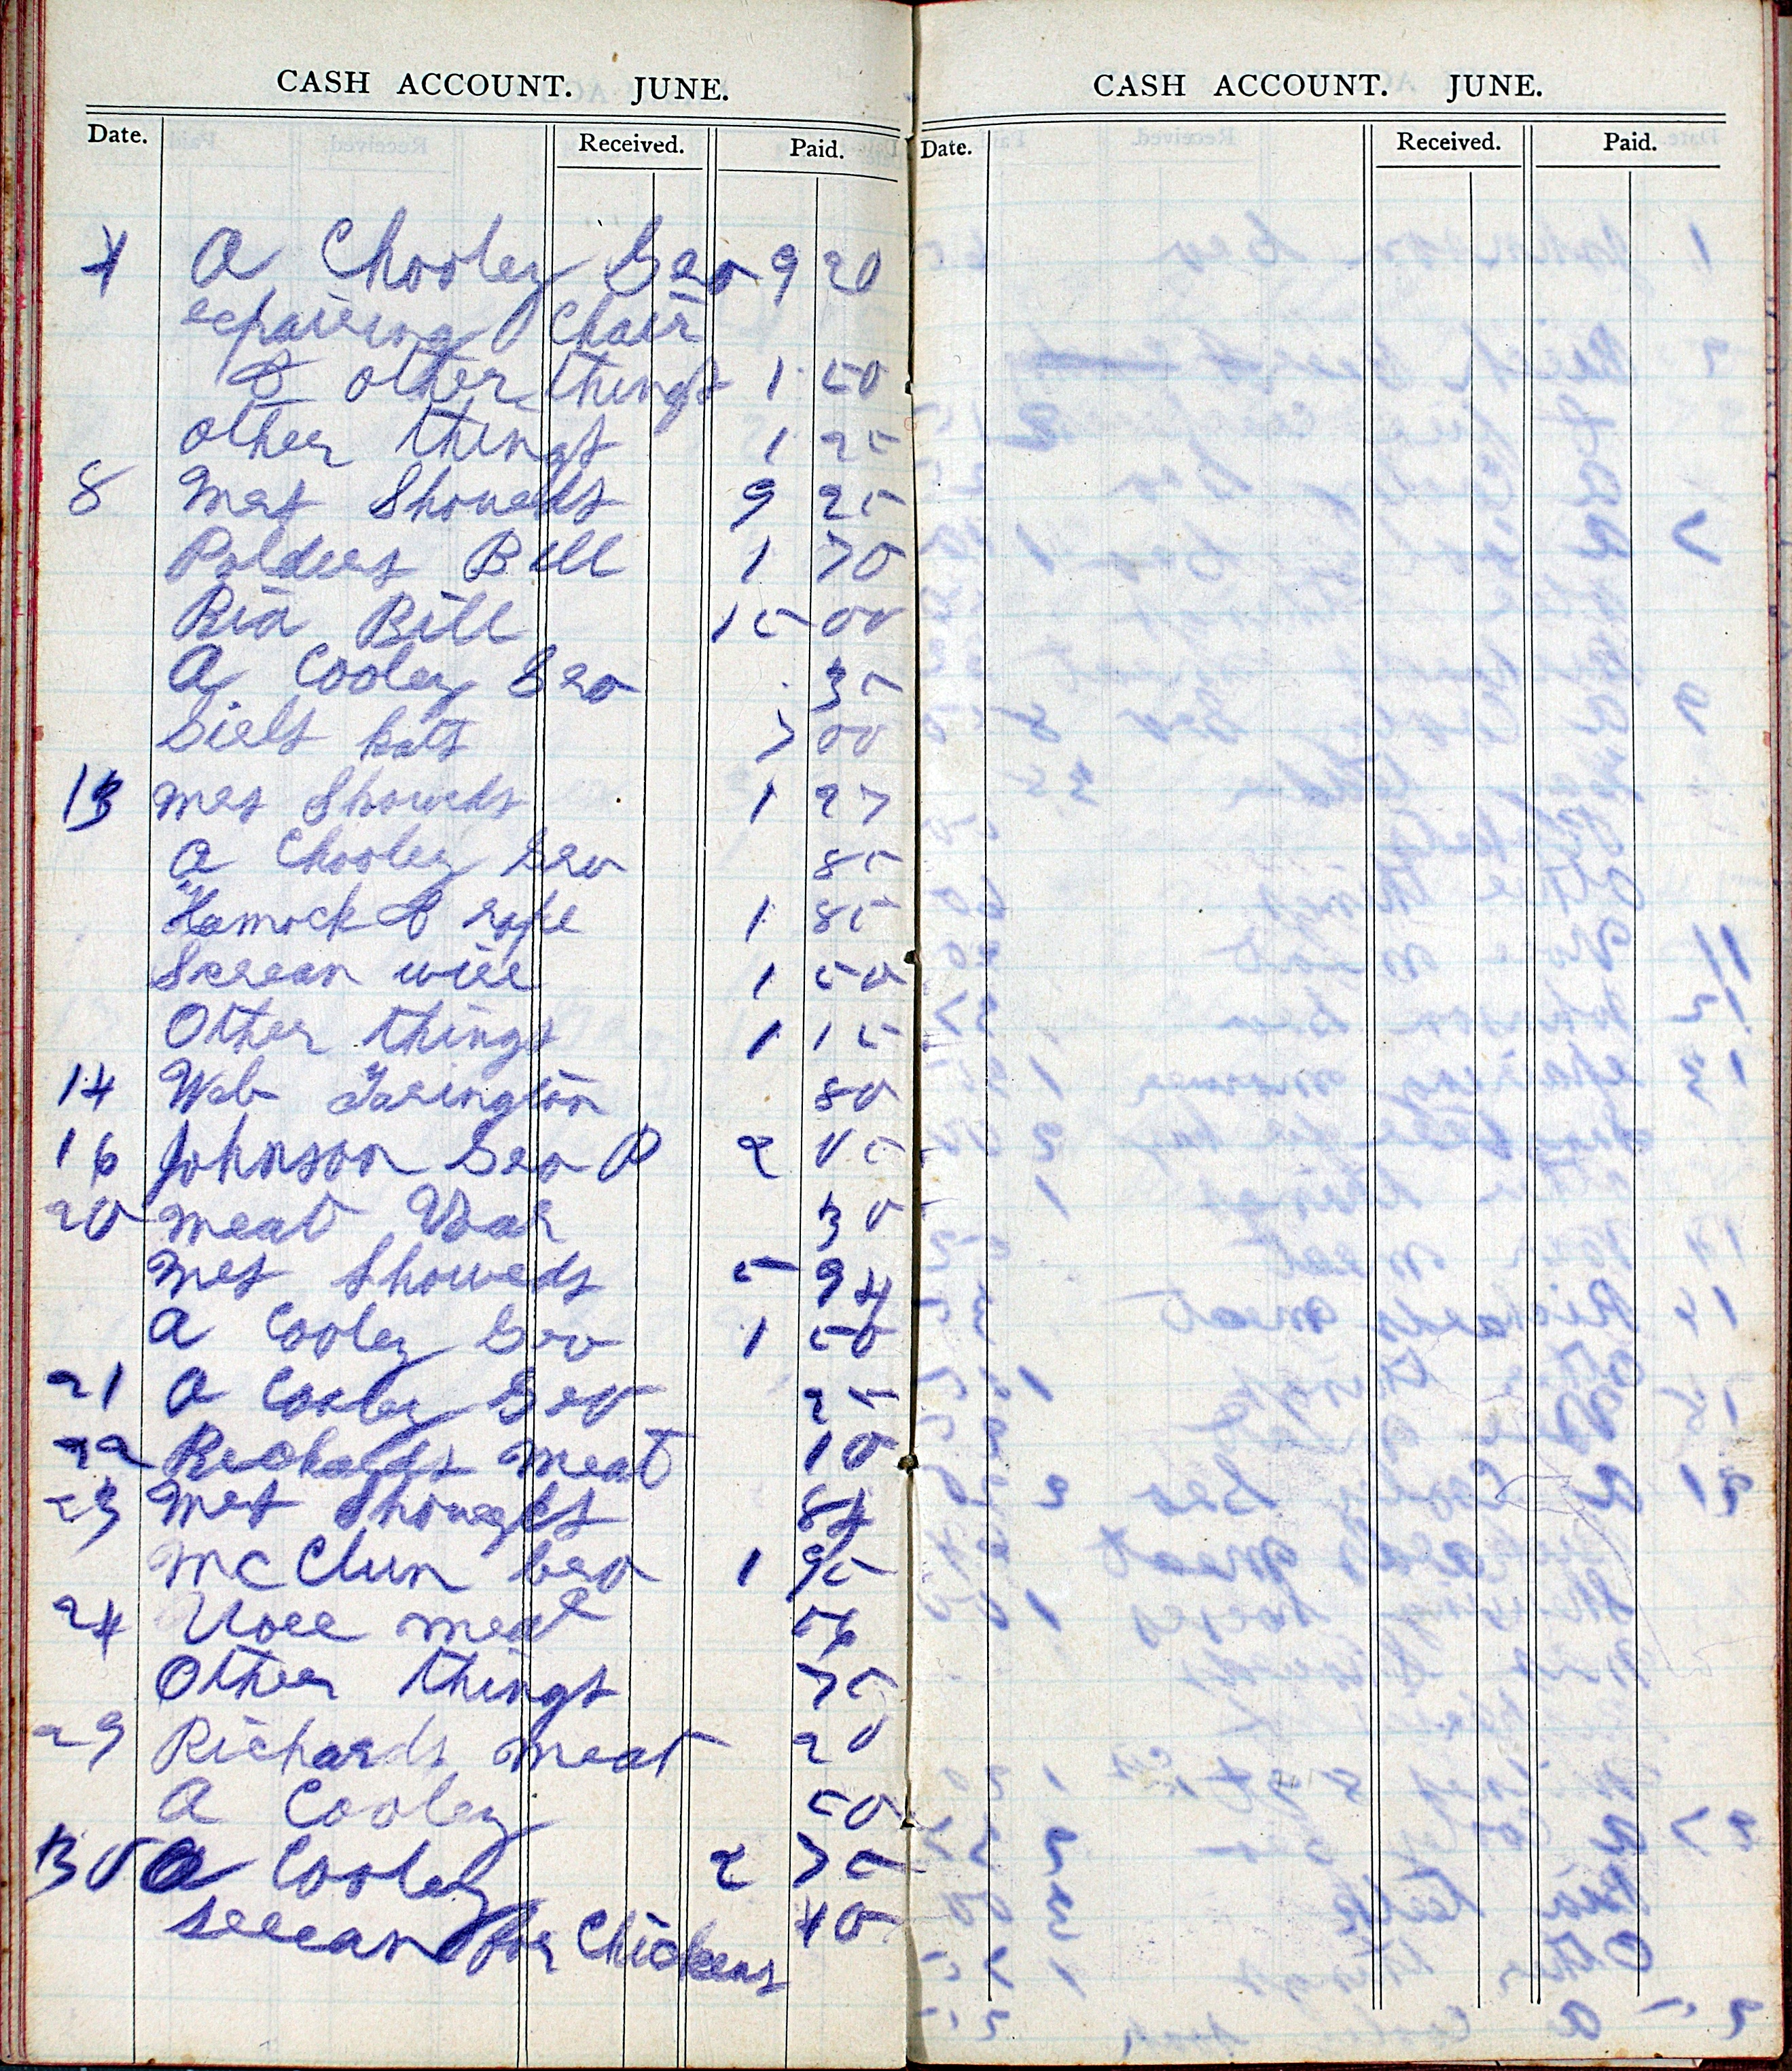 CASH ACCOUNT. JUNE.
Date. Received. Paid.
4 A Chooley Gro 9 20
epairing Chair
& other things 1 50
other things 1 25
8 Mrs Showeds 9 25
Polders Bill 1 70
Ria Bill 15 00
A Cooley Gro 35
Girls hats 7 00
13 Mrs Showeds 1 27
A Chooley Gro 85
Hamock & rope 1 85
Screan wire 1 50
Other things 1 15
14 Web Tarington 80
16 Johnson Gro P 2 05
20 meat Voar 30
Mrs Showeds 5 94
A Cooley Gro 1 50
21 A Cooley Gro 25
22 Richards meat 10
23 Mrs Showeds 84
McClun Gro 1 95
24 Vore meat 56
Other things 75
29 Richards meat 20
A Cooley 50
30 A Cooley 2 75
screan for Chickens 40
CASH ACCOUNT. JUNE.
Date. Received. Paid.